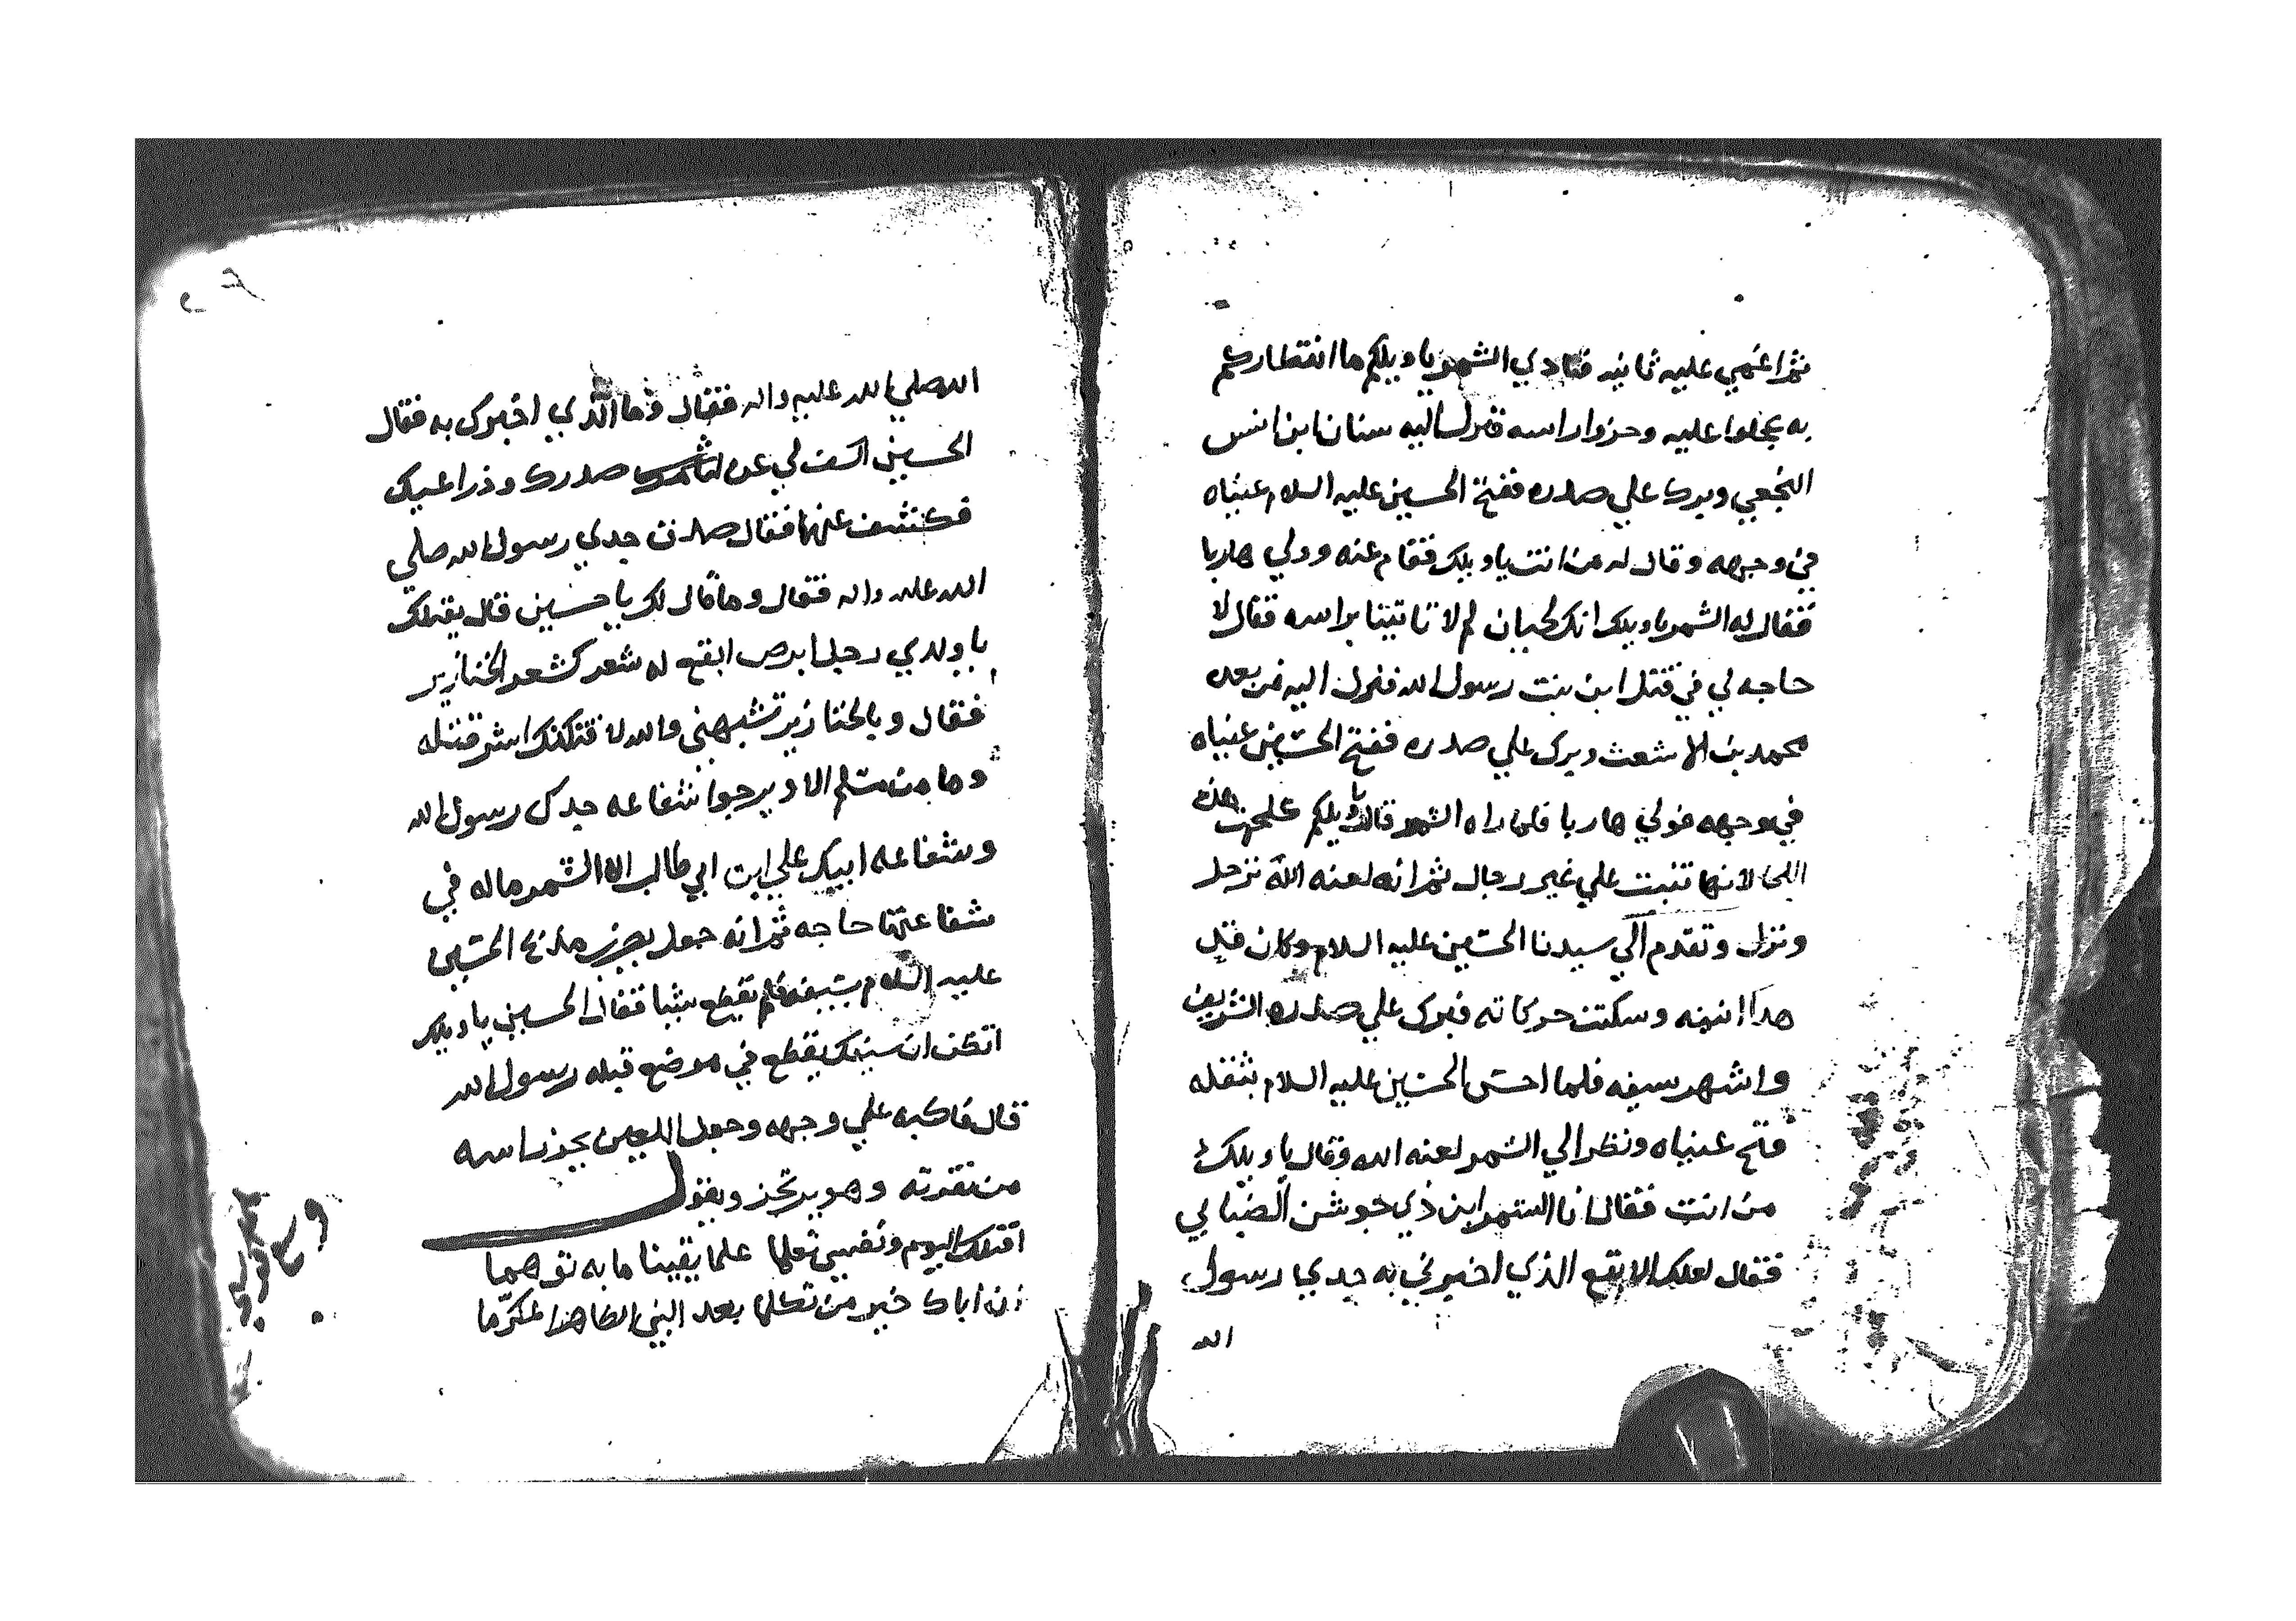 ثم اغمي عليه ثانيه فنادي الشمر يا ويلكم ما انتظاركم
به عجلوا عليه وحزوا راسه فنزل اليه سنان ابن انس
النخعي وبرك علي صدره ففتح الحسين عليه السلام عيناه
في وجهه وقال له من انت يا ويلك فقام عنه وولي هاربا
فقال له الشمر يا ويلك انك لجبان لم لا تاتينا براسه فقال لا
حاجه لي في قتل ابن بنت رسول الله فنزل اليه من بعده
محمد بن الاشعث وبرك علي صدره ففتح الحسين عيناه
في وجهه فولي هاربا فلما راه الشمر قال يا ويلكم هذه
اللحا لانها تنبت علي غير رجال ثم انه لعنه الله ترجل
ونزل وتقدم الي سيدنا الحسين عليه السلام وكان قد
هدا انينه وسكنت حركاته فبرك علي صدره الشريف
واشهر سيفه فلما احس الحسين عليه السلام بثقله
فتح عيناه ونظر الي الشمر لعنه الله وقال يا ويلك
من انت فقال انا الشمر ابن ذي جوشن الضبابي
فقال لعلك الابقع الذي اخبرني به جدي رسول
الله
الله صلي الله عليه واله فقال وما الذي اخبرك به فقال
الحسين اكشف لي عن صدرك وذراعيك
فكشف عنهما فقال صدق جدي رسول الله صلي
الله عليه واله فقال وما قال لك يا حسين قال يقتلك
يا ولدي رجل ابرص ابقع له شعر كشعر الخنازير
فقال وبالخنازير تشبهني والله لاقتلنك اشر قتله
وما من مسلم الا ويرجوا شفاعه جدك رسول الله
وشفاعه ابيك علي ابن ابي طالب الا الشمر ماله في
شفاعتهما حاجه ثم انه جعل يحز مذبح الحسين
عليه السلام بسيفه فلم يقطع شيا فقال الحسين يا ويلك
اتظن ان سيفك يقطع في موضع قبله رسول الله
قال فاكبه علي وجهه وجعل اللعين يحز راسه
من نقرته وهو يرتجز ويقول
اقتلك اليوم ونفسي تعلما علما يقينا ما به توهما
ان اباك خير من تكلما بعد النبي الطاهر المكرّما